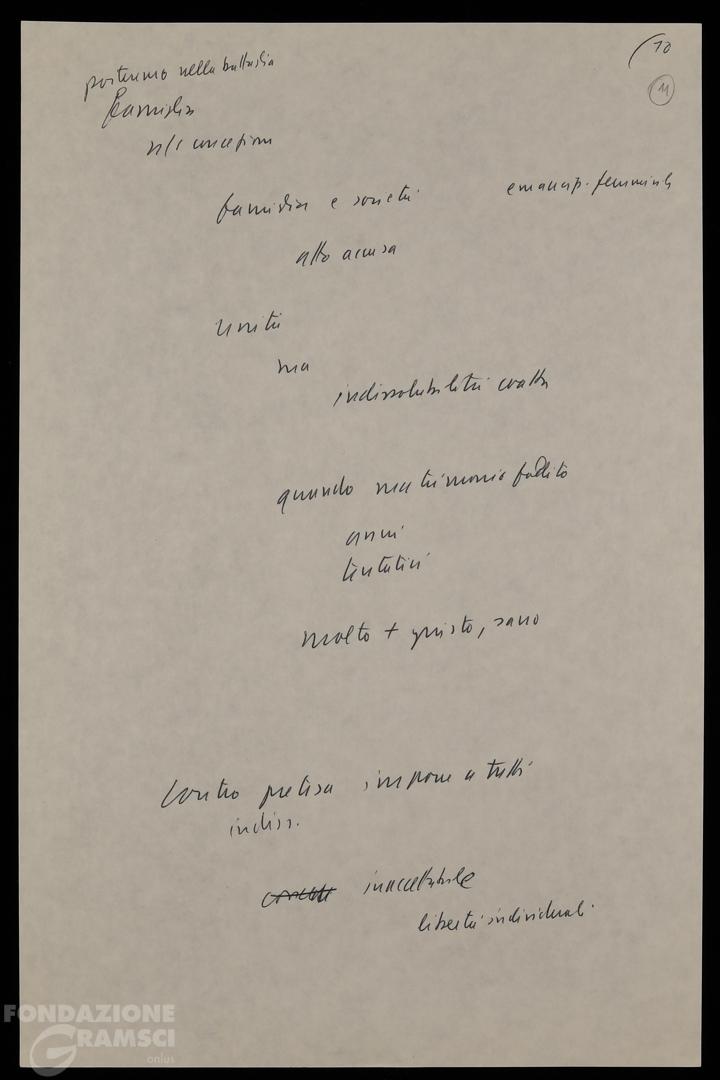 (10
11
porteremo nella battaglia
famiglia
ns/ concezione
famiglia e società emancip. femminile
atto accusa
unità
ma
indissolubilità coatta
quando matrimonio fallito
anni
tentativi
molto + giusto, sano
Contro pretesa imporre a tutti
indiss.
inaccettabile
libertà individuali
FONDAZIONE
GRAMSCI
onlus